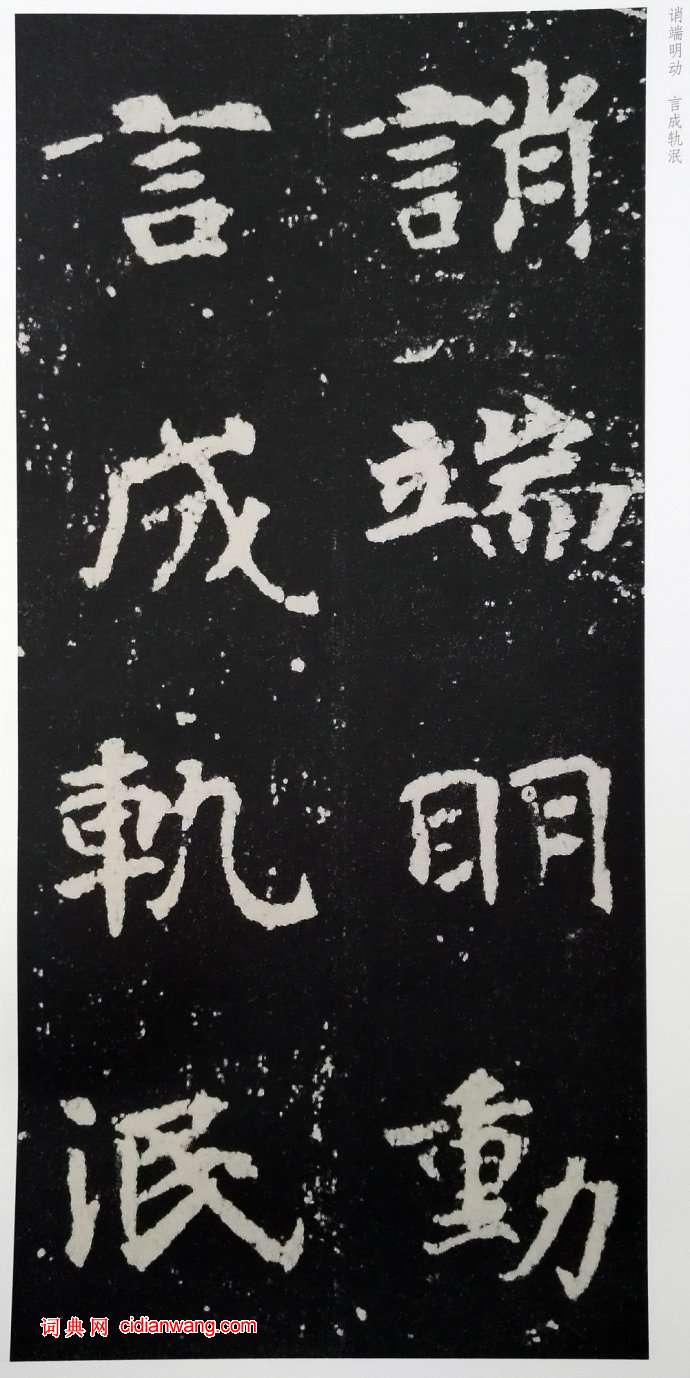 诮端明动 言成轨泯
誚端明動
言成軌泯
词典网 cidianwang.com